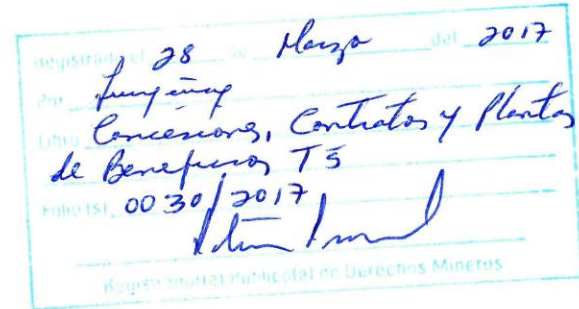 Registrado el 28 de Marzo del 2017
Por
Libro Concesiones, Contratos y Plantas
de Beneficios T5
Folio (s) 0030/2017
Registrador(a) Público(a) de Derechos Mineros